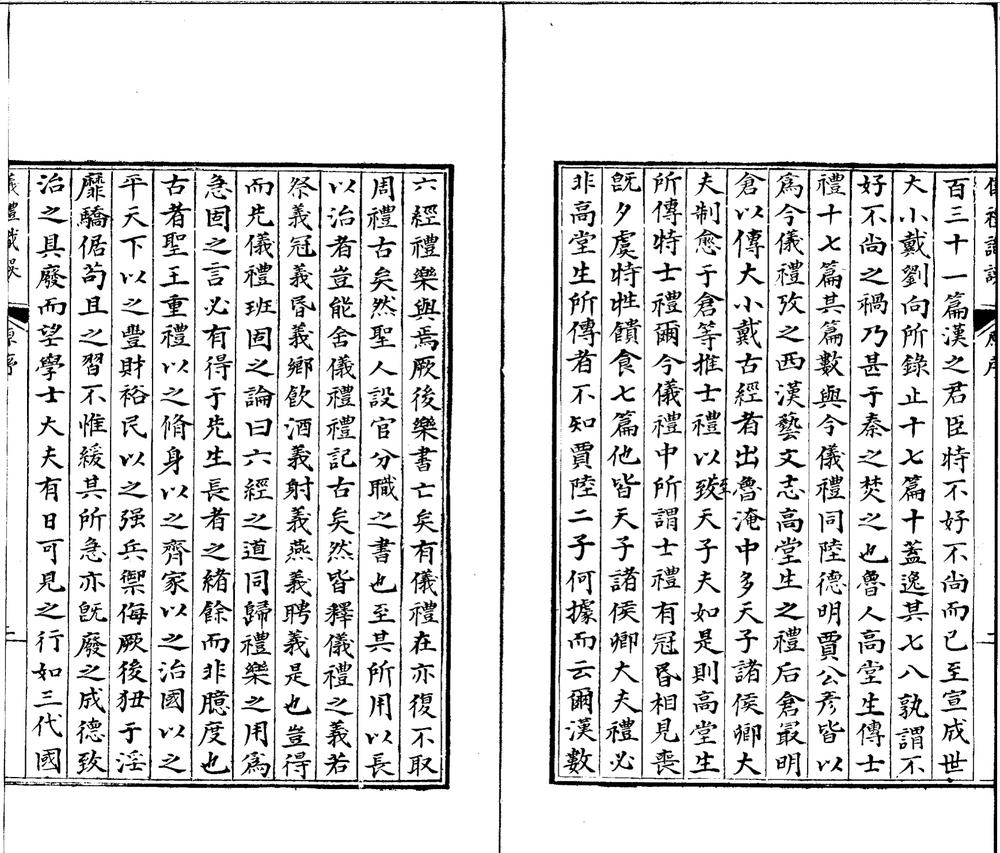 百三十一篇漢之君臣時不好不尚而已至宣成世
大小戴劉向所錄止十七篇十蓋逸其七八孰謂不
好不尚之禍乃甚于秦之焚之也魯人高堂生傳士
禮十七篇其篇數與今儀禮同陸德明賈公彥皆以
爲今儀禮攷之西漢藝文志高堂生之禮后倉最明
倉以傳大小戴古經者出魯淹中多天子諸侯卿大
夫制愈于倉等推士禮以致至天子夫如是則高堂生
所傳特士禮爾今儀禮中所謂士禮有冠昏相見喪
旣夕虞特牲饋食七篇他皆天子諸侯卿大夫禮必
非高堂生所傳者不知賈陸二子何據而云爾漢數
六經禮樂與焉厥後樂書亡矣有儀禮在亦復不取
周禮古矣然聖人設官分職之書也至其所用以長
以治者豈能舍儀禮禮記古矣然皆釋儀禮之義若
祭義冠義昏義鄉飮酒義射義燕義聘義是也豈得
而先儀禮班固之論曰六經之道同歸禮樂之用爲
急固之言必有得于先生長者之緒餘而非臆度也
古者聖王重禮以之脩身以之齊家以之治國以之
平天下以之豐財裕民以之强兵禦侮厥後狃于淫
靡驕倨苟且之習不惟緩其所急亦旣廢之成德致
治之具廢而望學士大夫有日可見之行如三代國